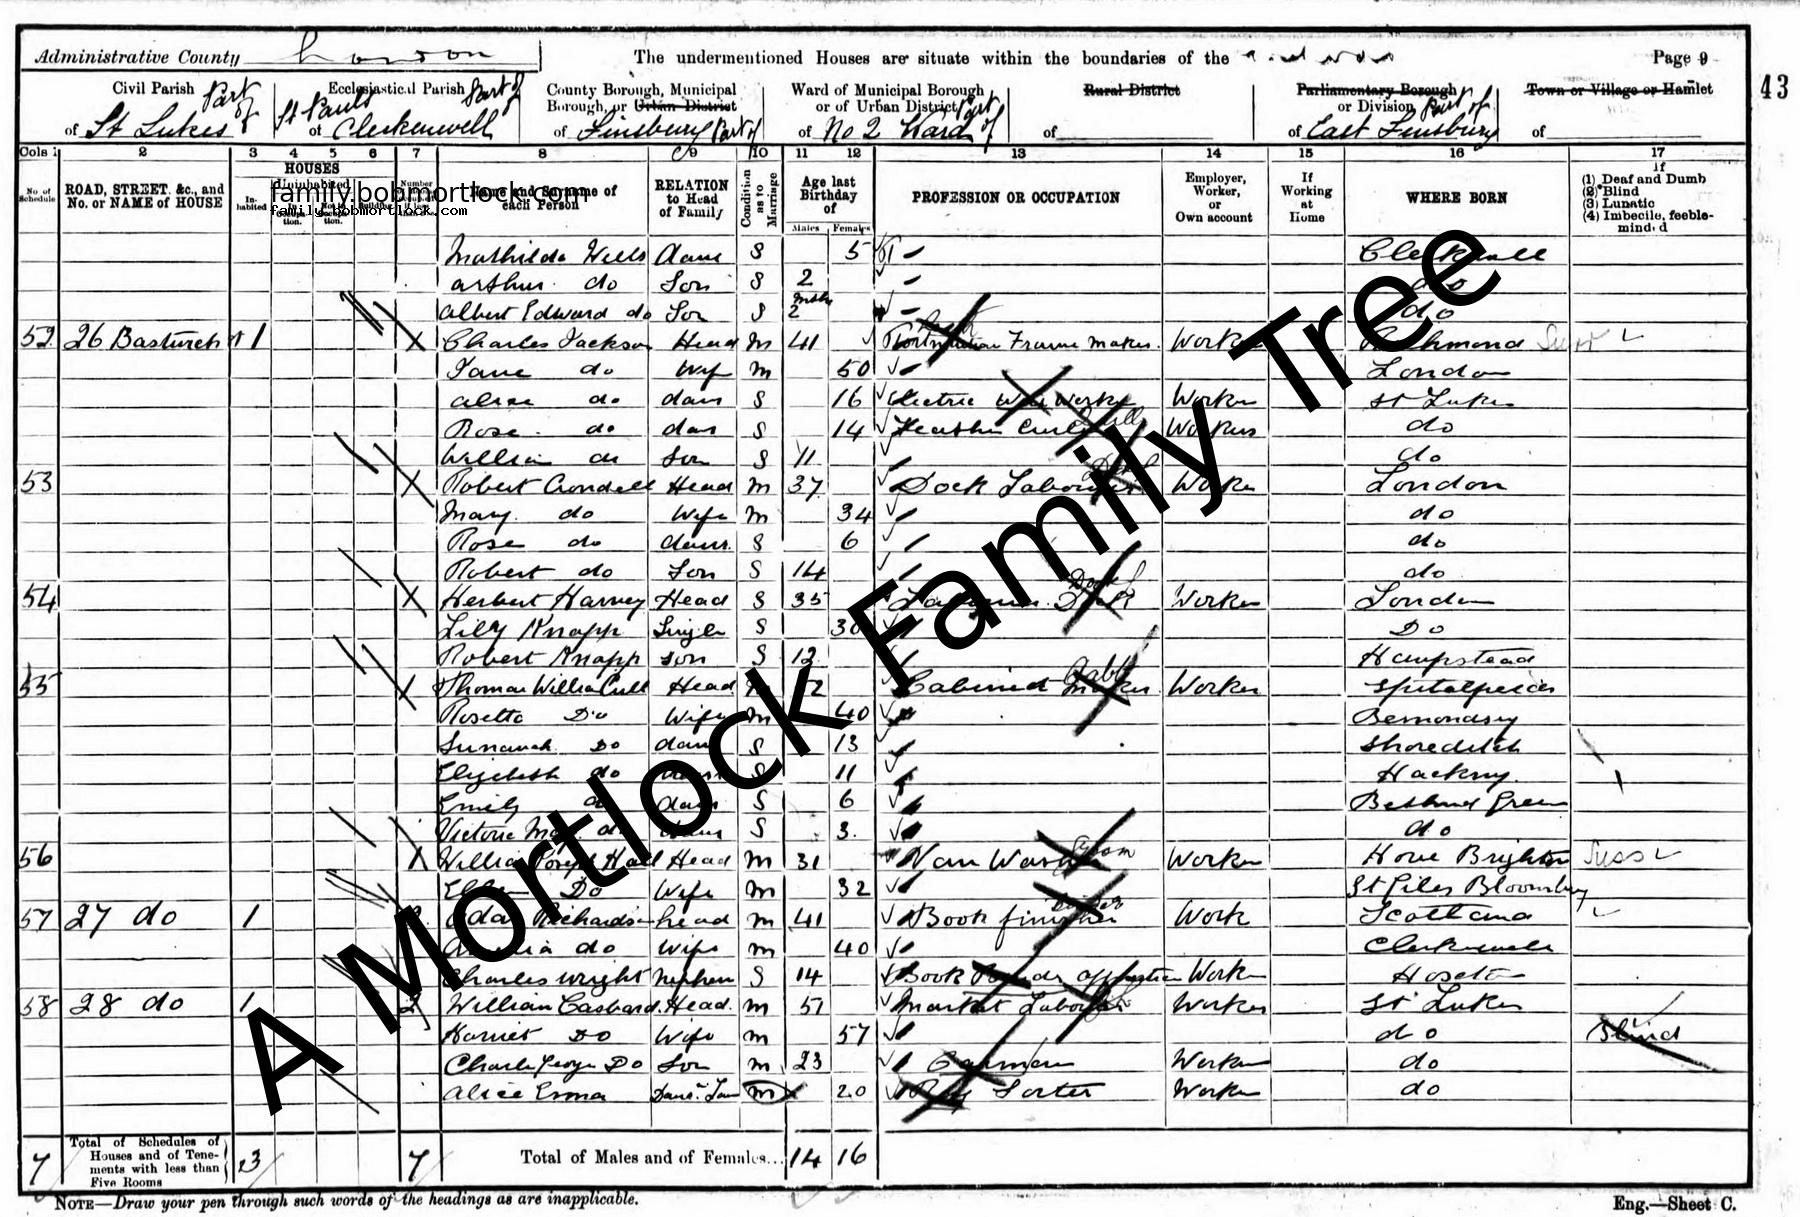 Administrative County London The undermentioned Houses are situate within the boundaries of the Page 9
43
Civil Parish Ecclesiastical Parish County Borough, Municipal Borough, or Urban District Ward of Municipal Borough or of Urban District Rural District Parliamentary Borough or Division Town or Village or Hamlet
of St Lukes Part of St Pauls of Clerkenwell Part of of Finsbury Part of of No 2 Ward Part of of of East Finsbury Part of of
Cols 1 2 3 4 5 6 7 8 9 10 11 12 13 14 15 16 17
No of Schedule ROAD, STREET, &c., and No. or NAME of HOUSE HOUSES Inhabited Uninhabited Name and Surname of each Person RELATION to Head of Family Condition as to Marriage Age last Birthday of Males Females PROFESSION OR OCCUPATION Employer, Worker, or Own account If Working at Home WHERE BORN If (1) Deaf and Dumb (2) Blind (3) Lunatic (4) Imbecile, feeble-minded
family.bobmortlock.com
family.bobmortlock.com
Mathilda Wells Daur S 5
Arthur do Son S 2 do
Albert Edward do Son S 2 mths do
52 26 Bastwick St 1 Charles Jackson Head M 41 Frame Maker Worker Richmond
Jane do Wife M 50 London
do daur S 16 Electric Wire Works Worker St Lukes
Rose do daur S 14 Feather Curler Worker do
William do Son S 11 do
53 Robert Crondell Head M 37 Dock Labourer Worker London
Mary do Wife M 34 do
Rose do daur S 6 do
Robert do Son S 14 do
54 Herbert Harvey Head S 35 Worker London
Lily Knapp Single S 30 Do
Robert Knapp son S 12 Hampstead
55 Thomas Head Cabinet Maker Worker Spitalfields
Rosetta Do Wife M 40 Bermondsey
Do daur S 13 Shoreditch
Elizabeth do daur S 11 Hackney
Emily do daur S 6 Bethnal Green
Victoria May do daur S 3 do
56 William Joseph Hall Head M 31 Van Washer Worker Hove Brighton
Do Wife M 32 St Giles Bloomsbury
57 27 do 1 Richardson head M 41 Book finisher Work Scotland
do Wife M 40 Clerkenwell
Charles Wright Nephew S 14 Book Worker Hoxton
58 28 do 1 2 William Casbard Head M 51 Market Labourer Worker St Lukes
Harriet Do Wife M 57 do Blind
Charles George Do Son M 23 Carman Worker do
Alice Emma M 20 Rag Sorter Worker do
7 Total of Schedules of Houses and of Tenements with less than Five Rooms 3 7 Total of Males and of Females... 14 16
NOTE—Draw your pen through such words of the headings as are inapplicable. Eng.—Sheet C.
A Mortlock Family Tree